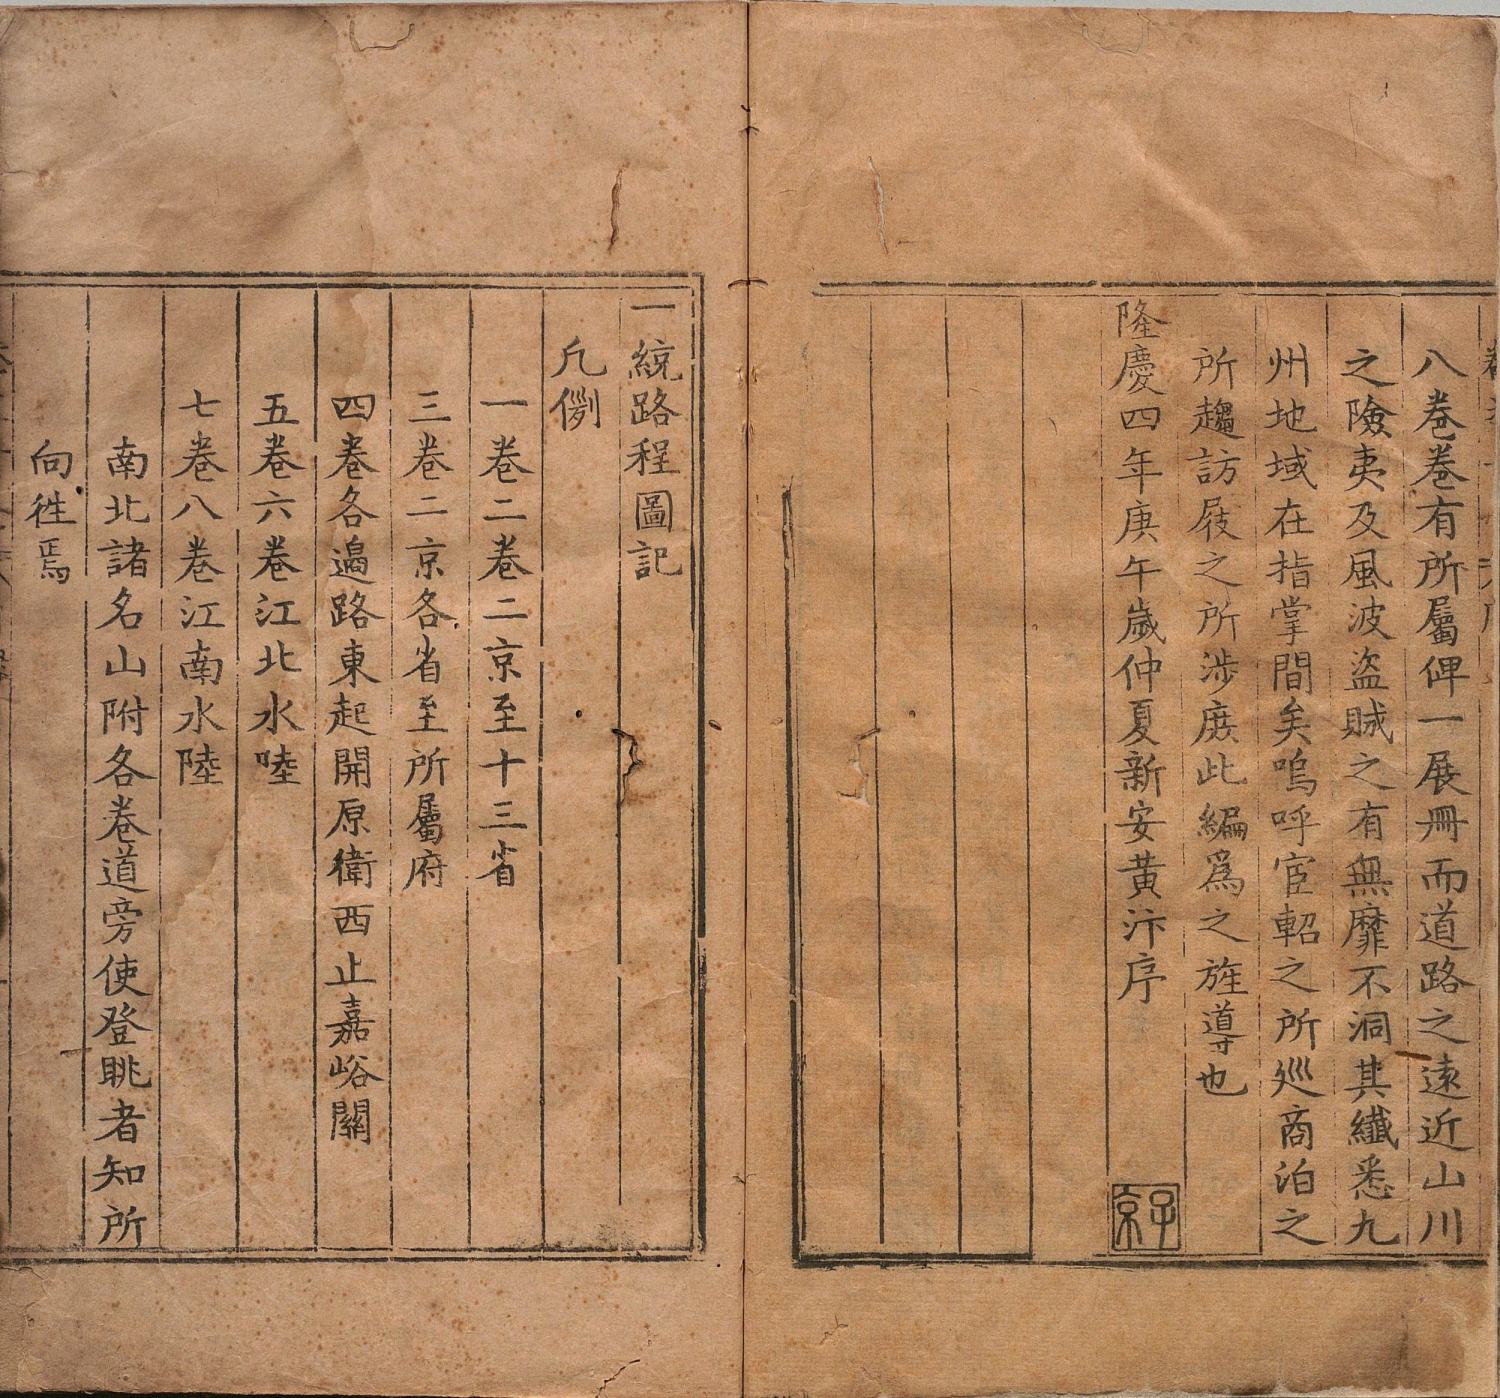 八卷卷有所屬俾一展冊而道路之遠近山川
之險夷及風波盜賊之有無靡不洞其纖悉九
州地域在指掌間矣嗚呼宦軺之所巡商泊之
所趨訪屐之所涉庶此編爲之旌導也
隆慶四年庚午歲仲夏新安黄汴序
子京
一統路程圖記
凡例
一卷二卷二京至十三省
三卷二京各省至所屬府
四卷各邉路東起開原衛西止嘉峪關
五卷六卷江北水陸
七卷八卷江南水陸
南北諸名山附各卷道旁使登眺者知所
向徃焉